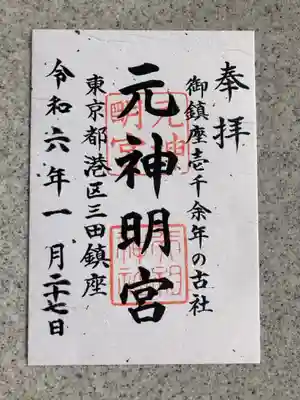 奉拝
御鎮座壱千余年の古社
元神明宮
東京都港区三田鎮座
令和六年一月二十七日
元神明宮